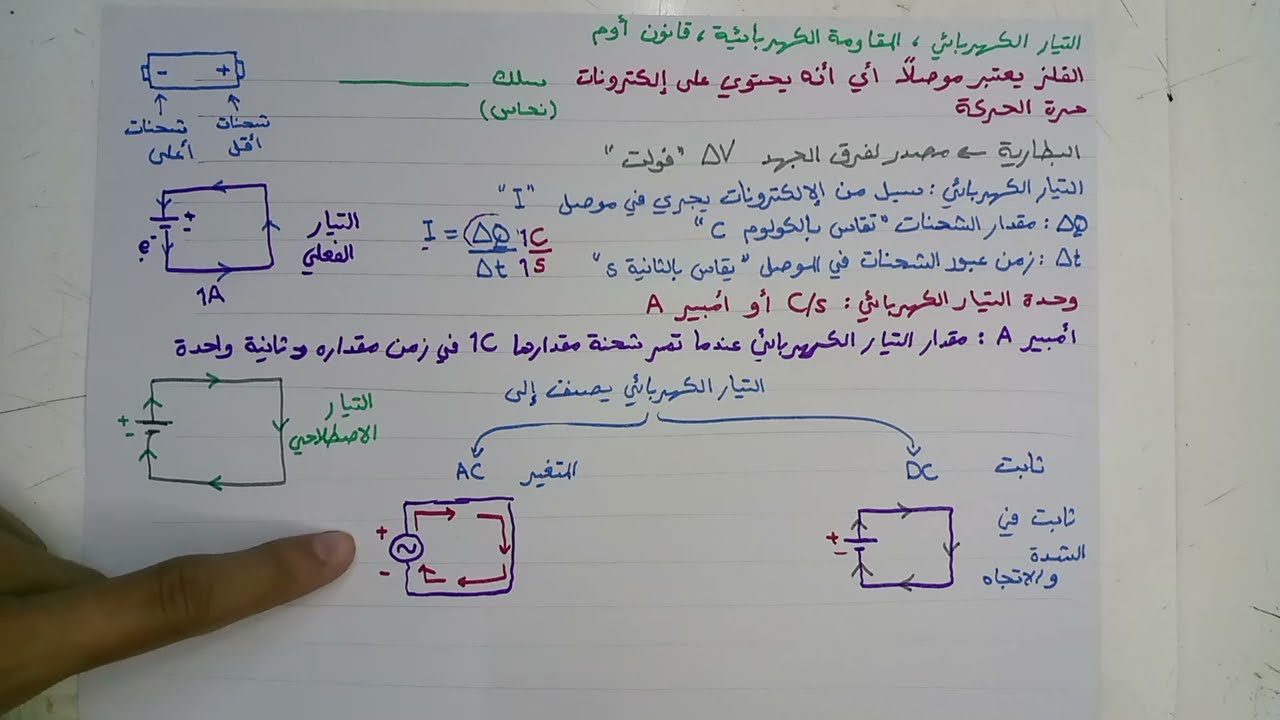 التيار الكهربائي ، المقاومة الكهربائية ، قانون أوم
الفلز يعتبر موصلاً أي أنه يحتوي على إلكترونات
حرة الحركة
سلك
(نحاس)
- +
شحنات أعلى
شحنات أقل
البطارية ← مصدر لفرق الجهد ΔV "فولت"
التيار الكهربائي : سيل من الإلكترونات يجري في موصل "I"
ΔQ : مقدار الشحنات "تقاس بالكولوم C"
Δt : زمن عبور الشحنات في الموصل "يقاس بالثانية s"
I = ΔQ/Δt 1C/1s
التيار
الفعلي
+
-
e-
1A
وحدة التيار الكهربائي : C/s أو أمبير A
أمبير A : مقدار التيار الكهربائي عندما تمر شحنة مقدارها 1C في زمن مقداره ثانية واحدة
التيار
الاصطلاحي
+
-
التيار الكهربائي يصنف إلى
ثابت DC
المتغير AC
ثابت في
الشدة
والاتجاه
+
-
+
-